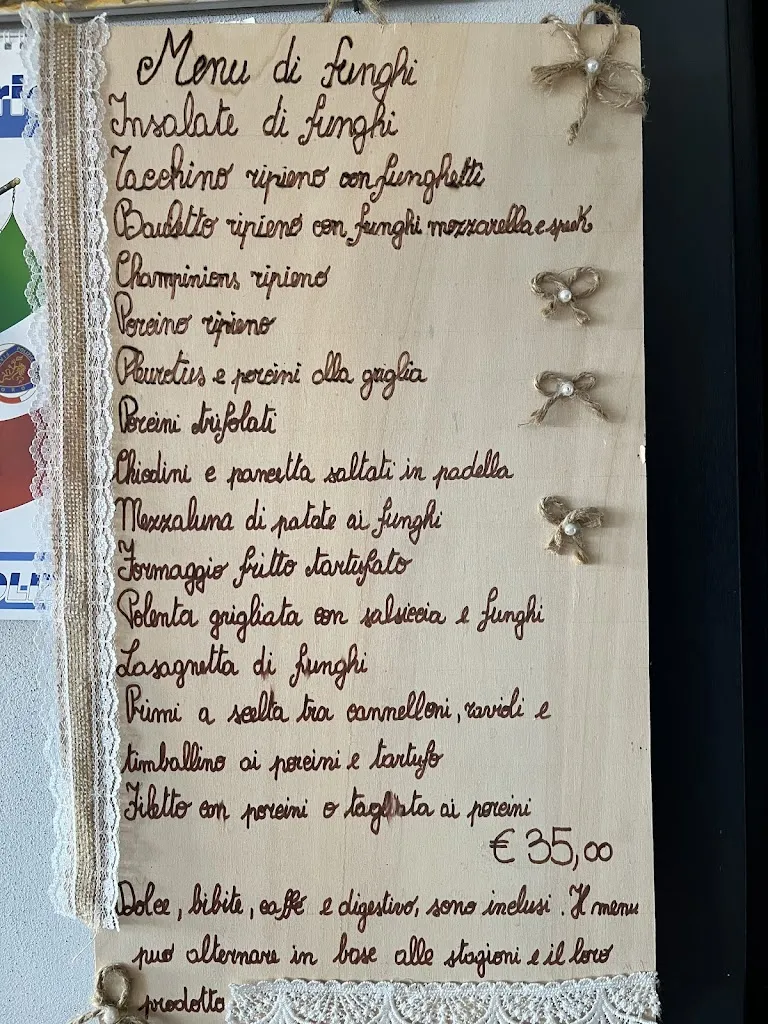 Menu di funghi
Insalate di funghi
Tacchino ripieno con funghetti
Bauletto ripieno con funghi mozzarella e speck
Champinions ripieno
Porcino ripieno
Pleurotus e porcini alla griglia
Porcini trifolati
Chiodini e pancetta saltati in padella
Mezzaluna di patate ai funghi
Formaggio fritto tartufato
Polenta grigliata con salsiccia e funghi
Lasagnetta di funghi
Primi a scelta tra cannelloni, ravioli e
timballino ai porcini e tartufo
Filetto con porcini o tagliata ai porcini
€ 35,00
Dolce, bibite, caffè e digestivo, sono inclusi. Il menu
può alternare in base alle stagioni e il loro
prodotto